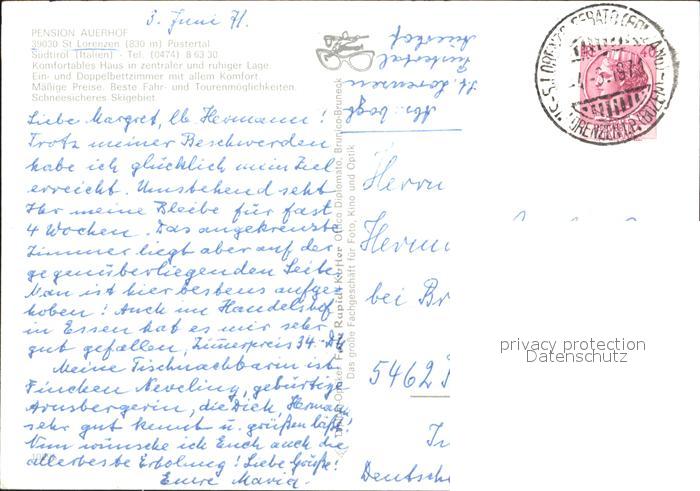 3. Juni 71.
PENSION AUERHOF
39030 St Lorenzen (830 m) Pustertal
Südtirol (Italien) - Tel. (0474) 8 63 30
Komfortables Haus in zentraler und ruhiger Lage.
Ein- und Doppelbettzimmer mit allem Komfort.
Mäßige Preise. Beste Fahr- und Tourenmöglichkeiten.
Schneesicheres Skigebiet
Liebe Margret, lb Hermann!
Trotz meiner Beschwerden
habe ich glücklich mein Ziel
erreicht. Umstehend seht
Ihr meine Bleibe für fast
4 Wochen. Das angekreuzte
Zimmer liegt aber auf der
gegenüberliegenden Seite.
Man ist hier bestens aufge-
hoben! Auch im Handelshof
in Essen hat es mir sehr
gut gefallen, Zimmerpreis 34.- DM
Meine Tischnachbarin ist
Finchen Neveling, gebürtige
Arnsbergerin, die Dich, Hermann
sehr gut kennt u. grüßen läßt!
Nun wünsche ich Euch auch die
allerbeste Erholung! Liebe Grüße!
Eure Maria.
Foto Rapid-Kofler Ottico Diplomato, Brunico-Bruneck
Das große Fachgeschäft für Foto, Kino und Optik
Abs.: Vogt
St. Lorenzen
Pustertal
Auerhof
Herrn
Herm
bei Br
5462
Deutsch
privacy protection
Datenschutz